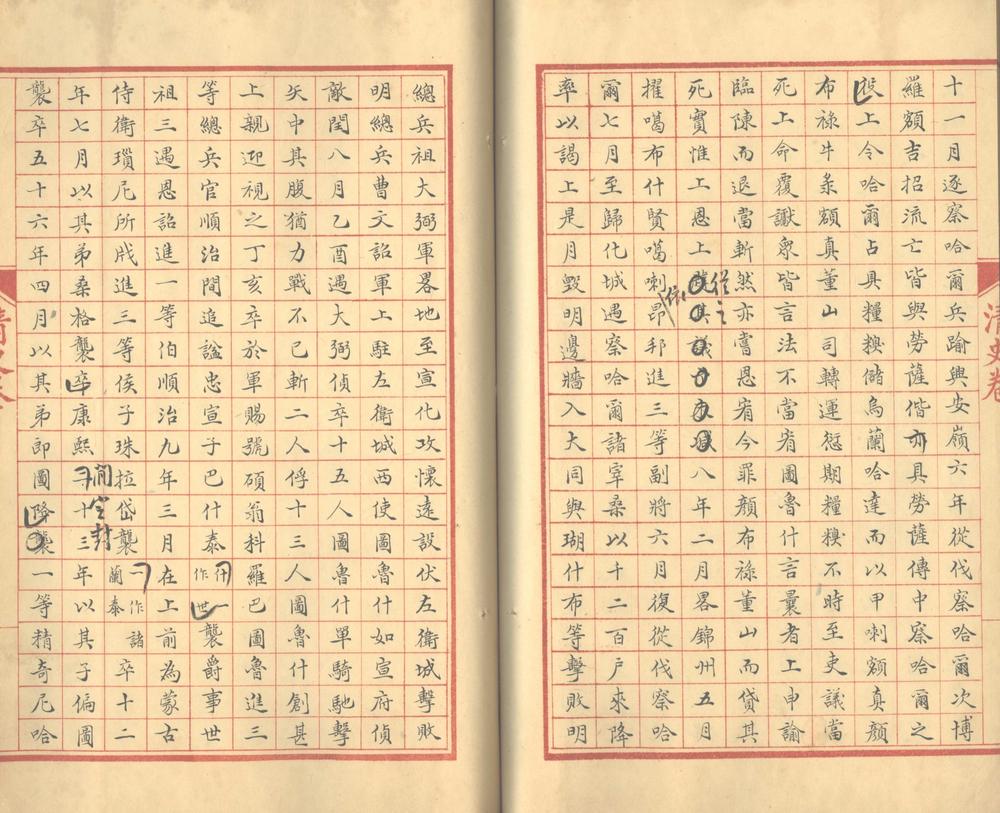 十一月逐察哈爾兵踰興安嶺六年從伐察哈爾次博
羅額吉招流亡皆與勞薩偕亦具勞薩傳中察哈爾之
役上令哈爾占具糧糗儲烏蘭哈達而以甲喇額真顏
布祿牛彔額真董山司轉運愆期糧糗不時至吏議當
死上命覆讞眾皆言法不當宥圖魯什言曩者上申諭
臨陳而退當斬然亦嘗恩宥今罪顏布祿董山而貸其
死實惟上恩上從之八年二月畧錦州五月
擢噶布什賢噶喇昂邦進三等副將六月復從伐察哈
爾七月至歸化城遇察哈爾諸宰桑以十二百戶來降
率以謁上是月毀明邊牆入大同與瑚什布等擊敗明
總兵祖大弼軍畧地至宣化攻懷遠設伏左衛城擊敗
明總兵曹文詔軍上駐左衛城西使圖魯什如宣府偵
敵閏八月乙酉遇大弼偵卒十五人圖魯什單騎馳擊
矢中其腹猶力戰不已斬二人俘十三人圖魯什創甚
上親迎視之丁亥卒於軍賜號碩翁科羅巴圖魯進三
等總兵官順治間追諡忠宣子巴什泰什一作世襲爵事世
祖三遇恩詔進一等伯順治九年三月在上前為蒙古
侍衛瑣尼所戕進三等侯子珠拉岱襲一作諸蘭泰卒十二
年七月以其弟桑格襲卒康熙間定封十三年以其子偏圖
襲卒五十六年四月以其弟即圖降襲一等精奇尼哈
清史卷